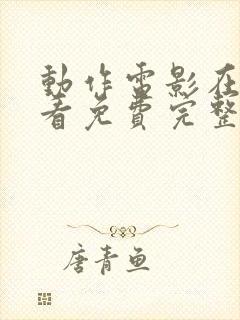 動作電影在
看免費完整
唐青魚